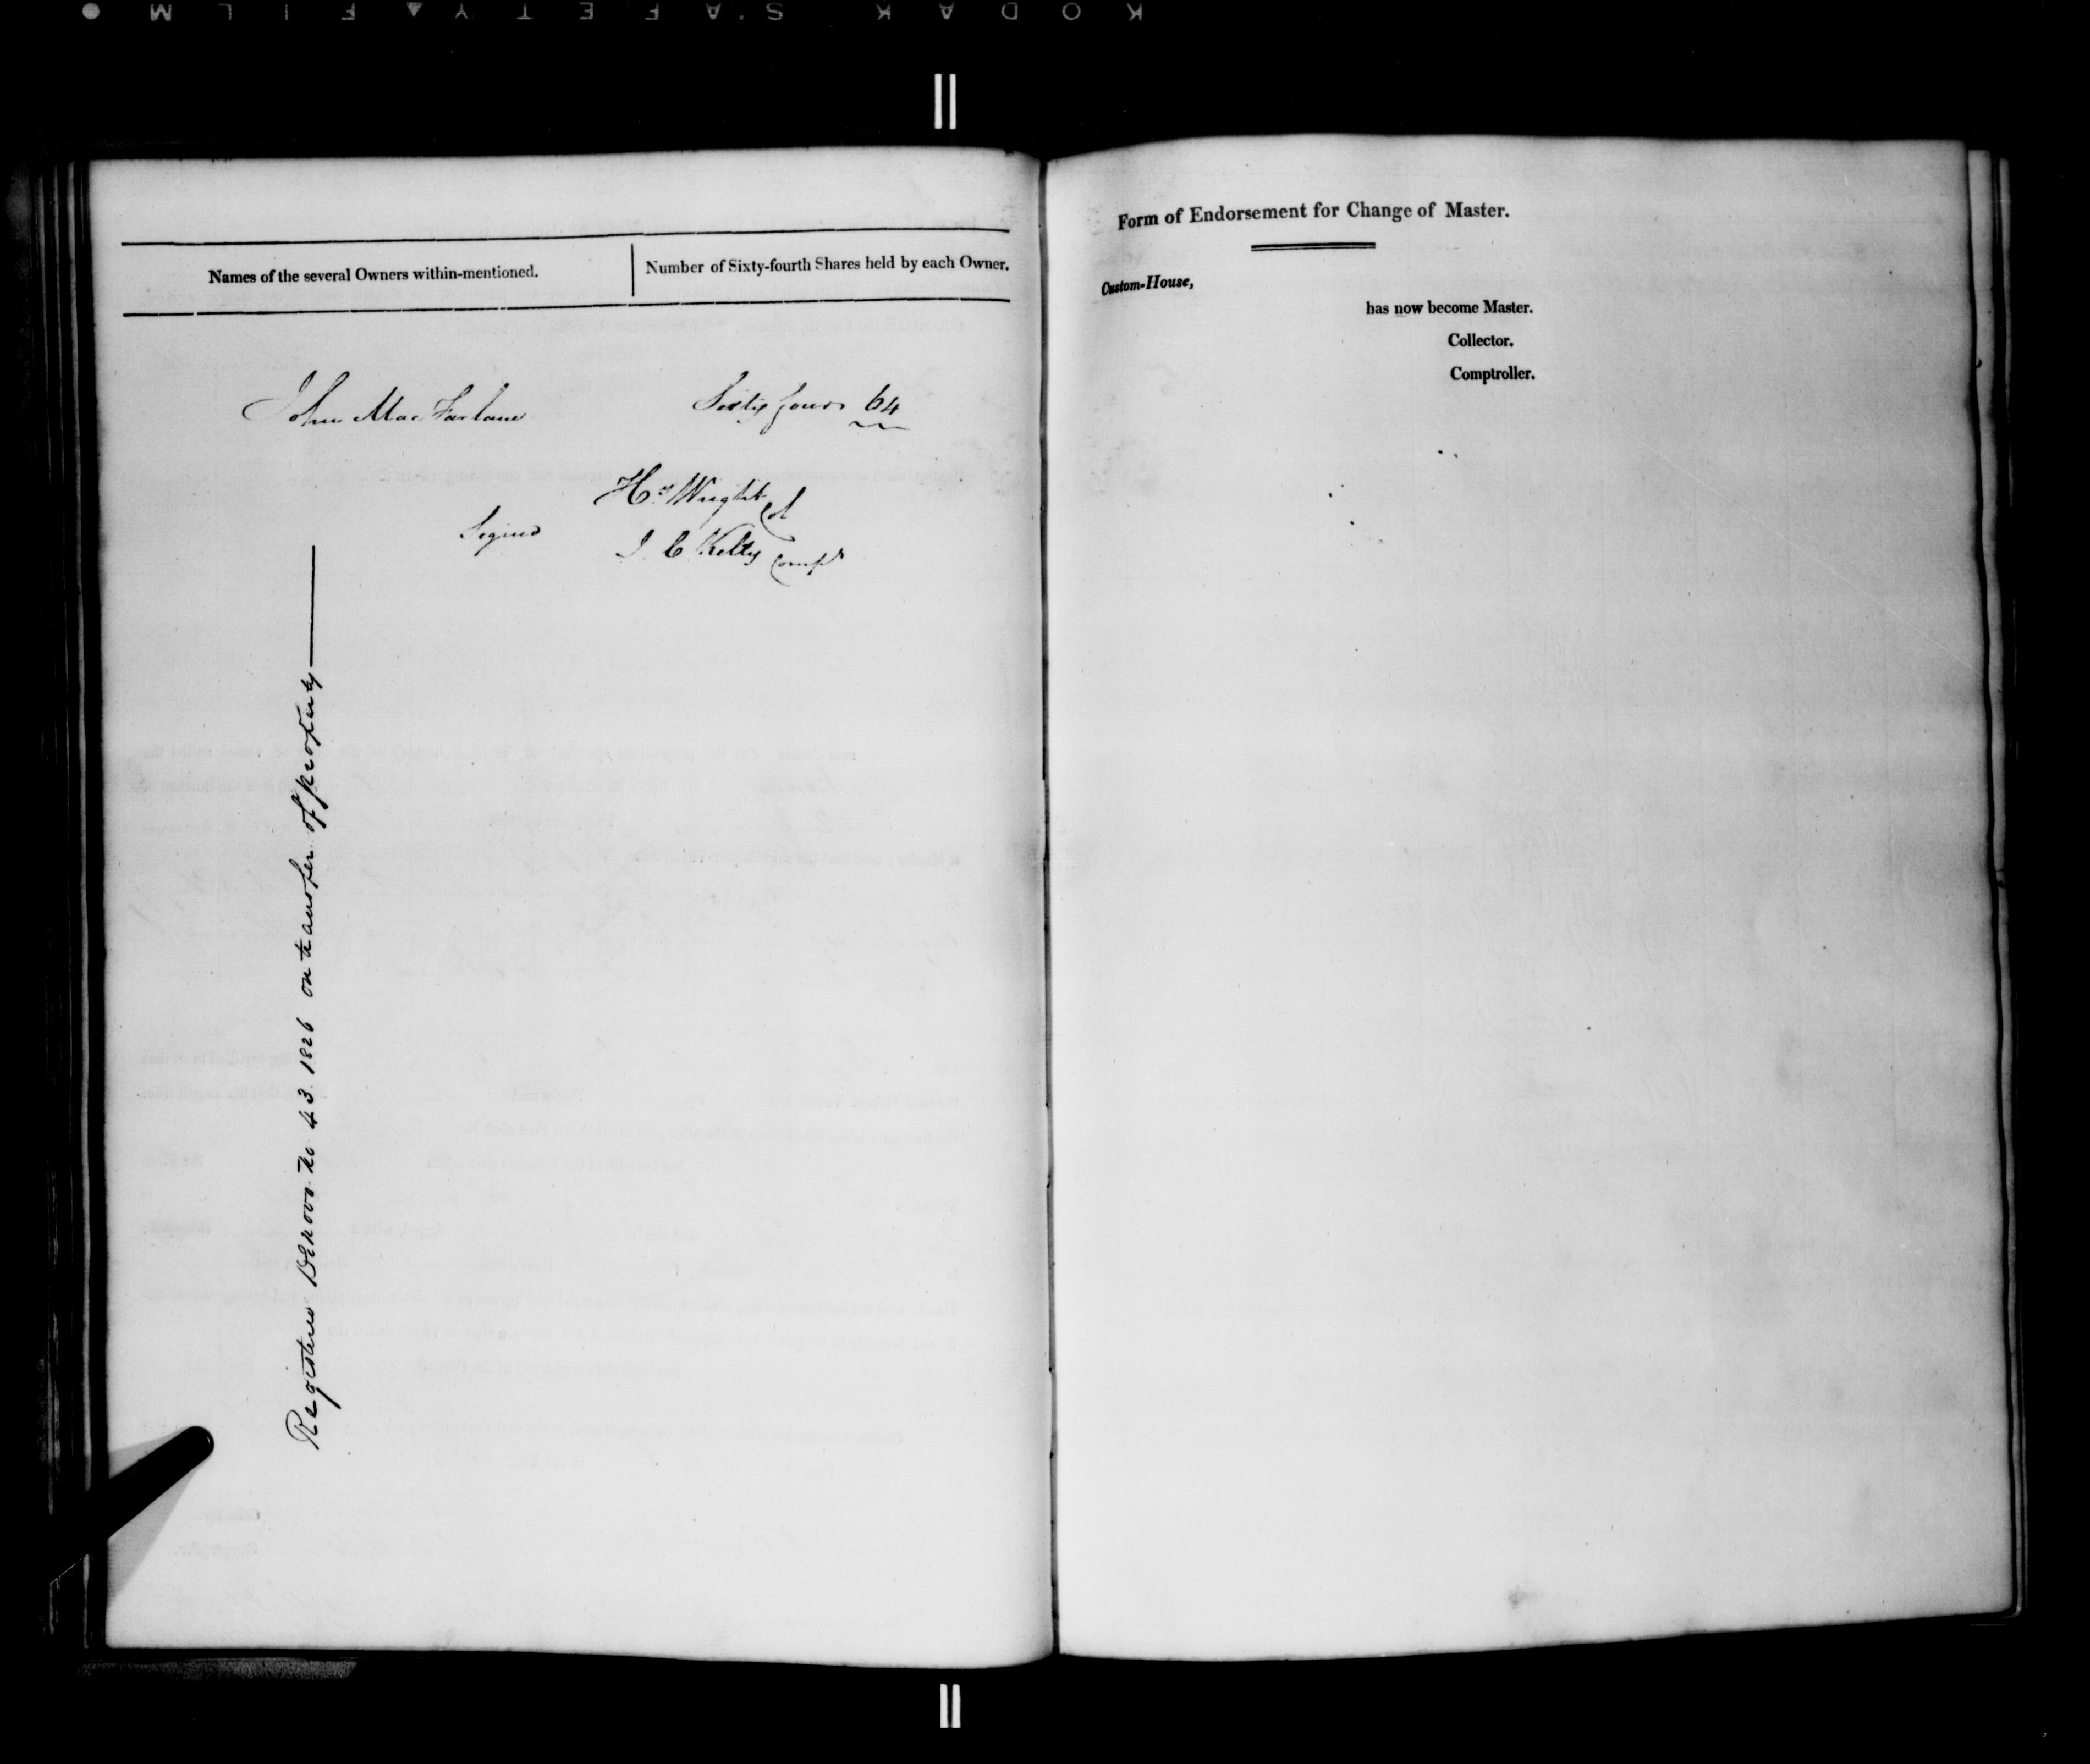 KODAK SAFETY FILM
Names of the several Owners within-mentioned.
Number of Sixty-fourth Shares held by each Owner.
John MacFarlane
Sixty four 64
Hy Wright Col
Signed
J. C Kelly Compr
Registered De Novo No 43. 1826 on transfer of property
Form of Endorsement for Change of Master.
Custom-House,
has now become Master.
Collector.
Comptroller.